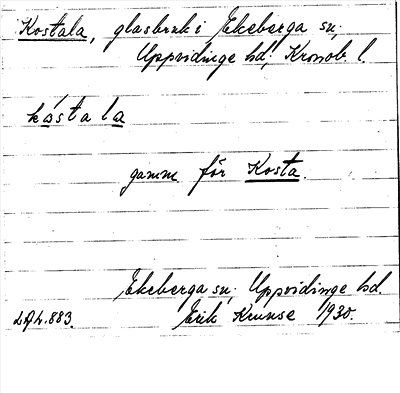 Kostala, glasbruk i Ekeberga sn;
Uppvidinge hd; Kronob. l.
kåstala
gamm. för Kosta.
Ekeberga sn; Uppvidinge hd.
LAL. 883. Erik Krunse 1930.